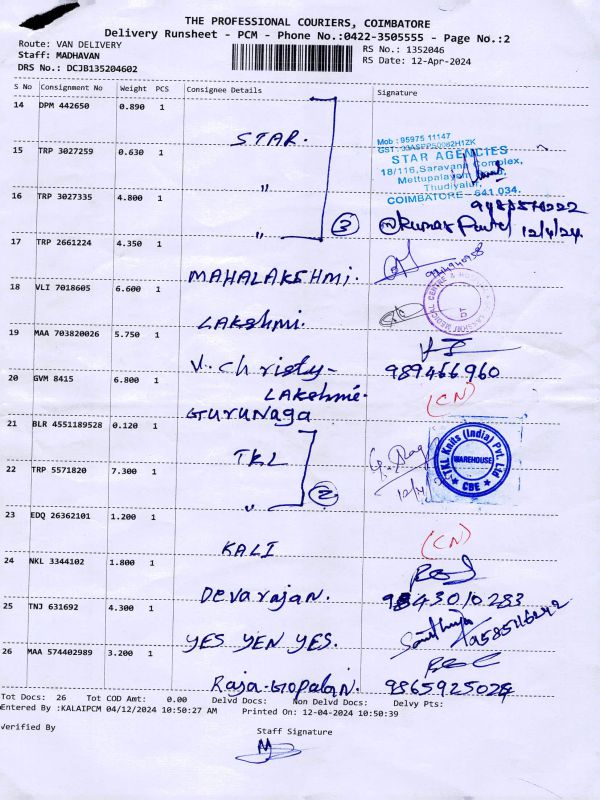 THE PROFESSIONAL COURIERS, COIMBATORE
Delivery Runsheet - PCM - Phone No.:0422-3505555 - Page No.:2
Route: VAN DELIVERY
Staff: MADHAVAN
DRS No.: DCJB135204602
RS No.: 1352046
RS Date: 12-Apr-2024
S No Consignment No Weight PCS Consignee Details Signature
14 DPM 442650 0.890 1
STAR.
Mob : 95975 11147
15 TRP 3027259 0.630 1
STAR AGENCIES
18/116, Saravana Complex,
Mettupalayam
Thudiyalur,
"
16 TRP 3027335 4.800 1
COIMBATORE - 641 034.
" 3 12/4/24
17 TRP 2661224 4.350 1
MAHALAKSHMI.
18 VLI 7018605 6.600 1
LAKSHMI MEDICAL CENTRE &
Lakshmi.
19 MAA 703820026 5.750 1
V. Christy- 989466960
20 GVM 8415 6.800 1
LAKshmi- (CN)
GURUNAGA
21 BLR 4551189528 0.120 1
TKL
TKL Knits (India) Pvt Ltd
WAREHOUSE
CBE
22 TRP 5571820 7.300 1
" 2
23 EDQ 26362101 1.200 1
KALI (CN)
24 NKL 3344102 1.800 1
Devarajan. 9843010283
25 TNJ 631692 4.300 1
YES YEN YES.
26 MAA 574402989 3.200 1
Raja-Gopalan. 9865925024
Tot Docs: 26 Tot COD Amt: 0.00 Delvd Docs: Non Delvd Docs: Delvy Pts:
Entered By :KALAIPCM 04/12/2024 10:50:27 AM Printed On: 12-04-2024 10:50:39
Verified By
Staff Signature